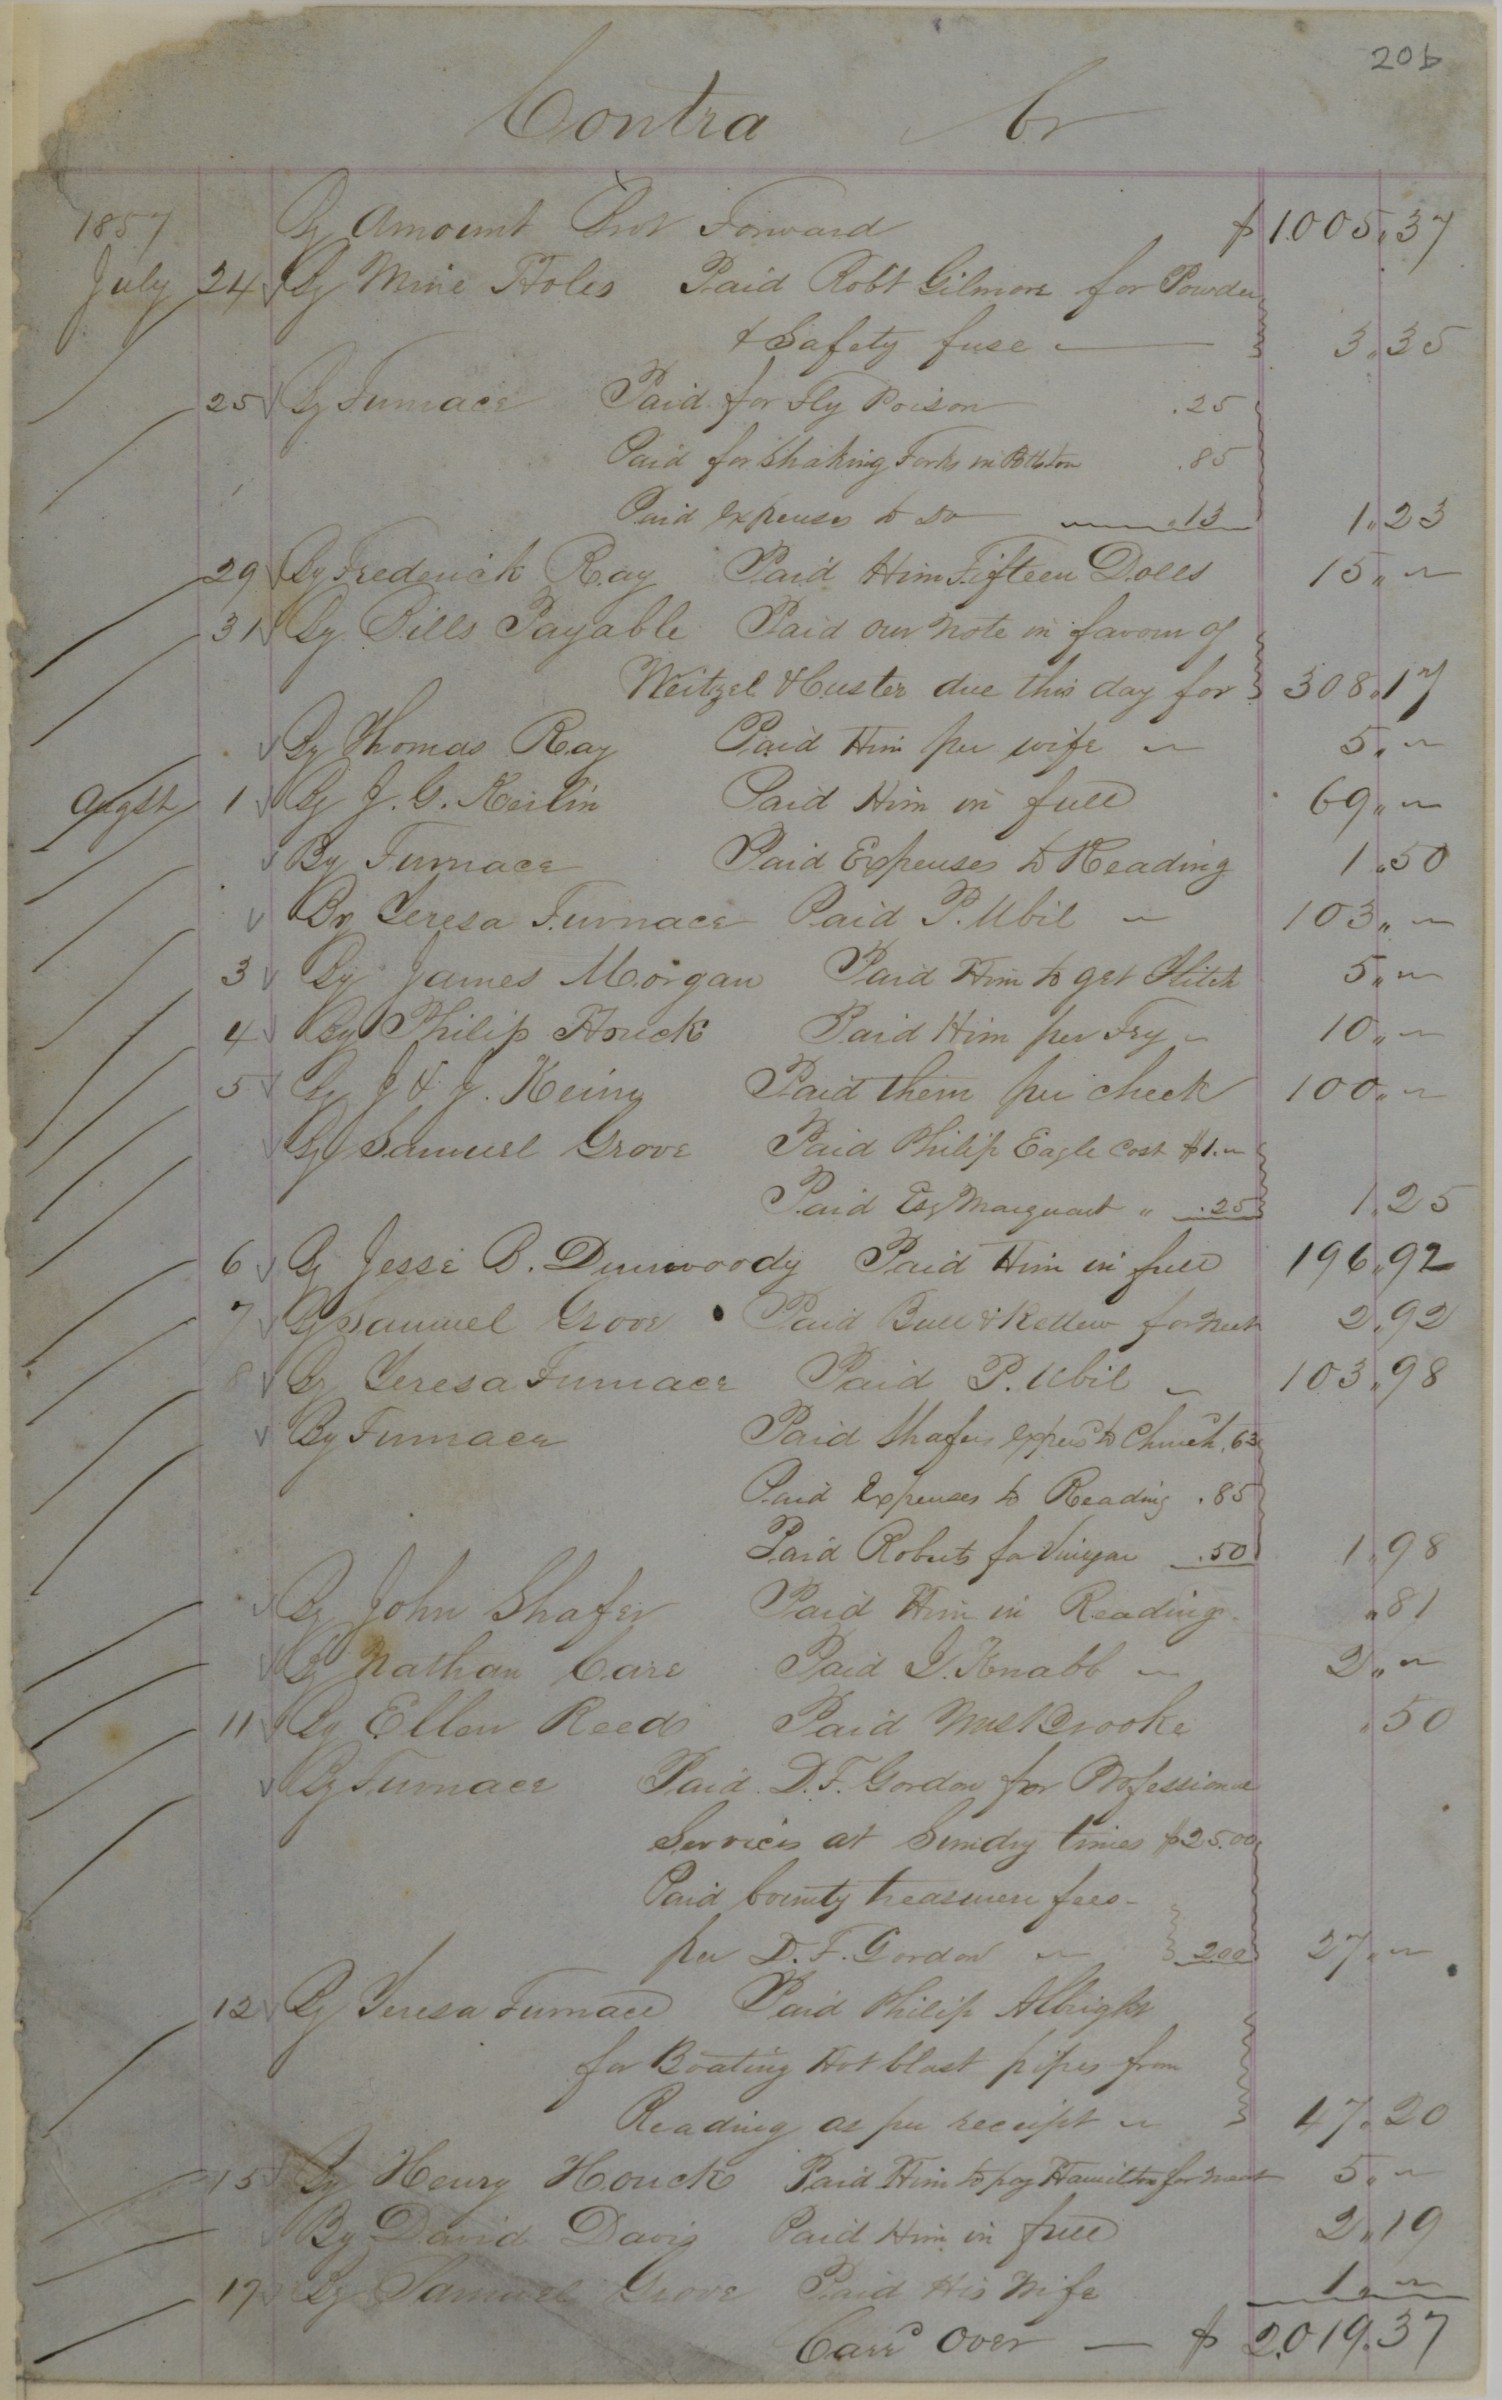 206
Contra Cr
1857 By Amount Brot Forward $1005.37
July 24 By Mine Holes Paid Robt Gilmore for Powder
& Safety fuse 3.35
25 By Furnace Paid for Fly Poison .25
Paid for Shaking Forks in Pottstown .85
Paid Expenses to do .13 1.23
29 By Frederick Ray Paid Him Fifteen Dolls 15 "
31 By Bills Payable Paid our Note in favour of
Weitzel & Custer due this day for 308.17
By Thomas Ray Paid Him per wife 5 "
Augst 1 By J. G. Keilin Paid Him in full 69 "
By Furnace Paid Expenses to Reading 1.50
By Teresa Furnace Paid P. Ubil 103 "
3 By James Morgan Paid Him to get Flitch 5 "
4 By Philip Houck Paid Him per Fry 10 "
5 By J & J. Keiny Paid them per check 100 "
By Samuel Grove Paid Philip Eagle Cost $1. "
Paid Esq Marquart " .25 1.25
6 By Jesse B. Dunwoody Paid Him in full 196.92
7 By Samuel Grove Paid Bull & for Meat 2.92
8 By Teresa Furnace Paid P. Ubil 103.98
By Furnace Paid Shafers expens to Church .63
Paid Expenses to Reading .85
Paid Roberts for Vinegar .50 1.98
By John Shafer Paid Him in Reading .81
By Nathan Care Paid D. Knabb 2 "
11 By Ellen Reed Paid Mrs Brooke .50
By Furnace Paid D. F. Gordon for Professional
Services at Sundry times $25.00
Paid County treasurer fees
per D. F. Gordon 2.00 27 "
12 By Teresa Furnace Paid Philip Albright
for Boating Hot blast pipes from
Reading as per receipt 47.20
15 By Henry Houck Paid Him to pay Hamilton for meat 5 "
By David Davis Paid Him in full 2.19
17 By Samuel Grove Paid His Wife 1 "
Carrd Over $2.019.37